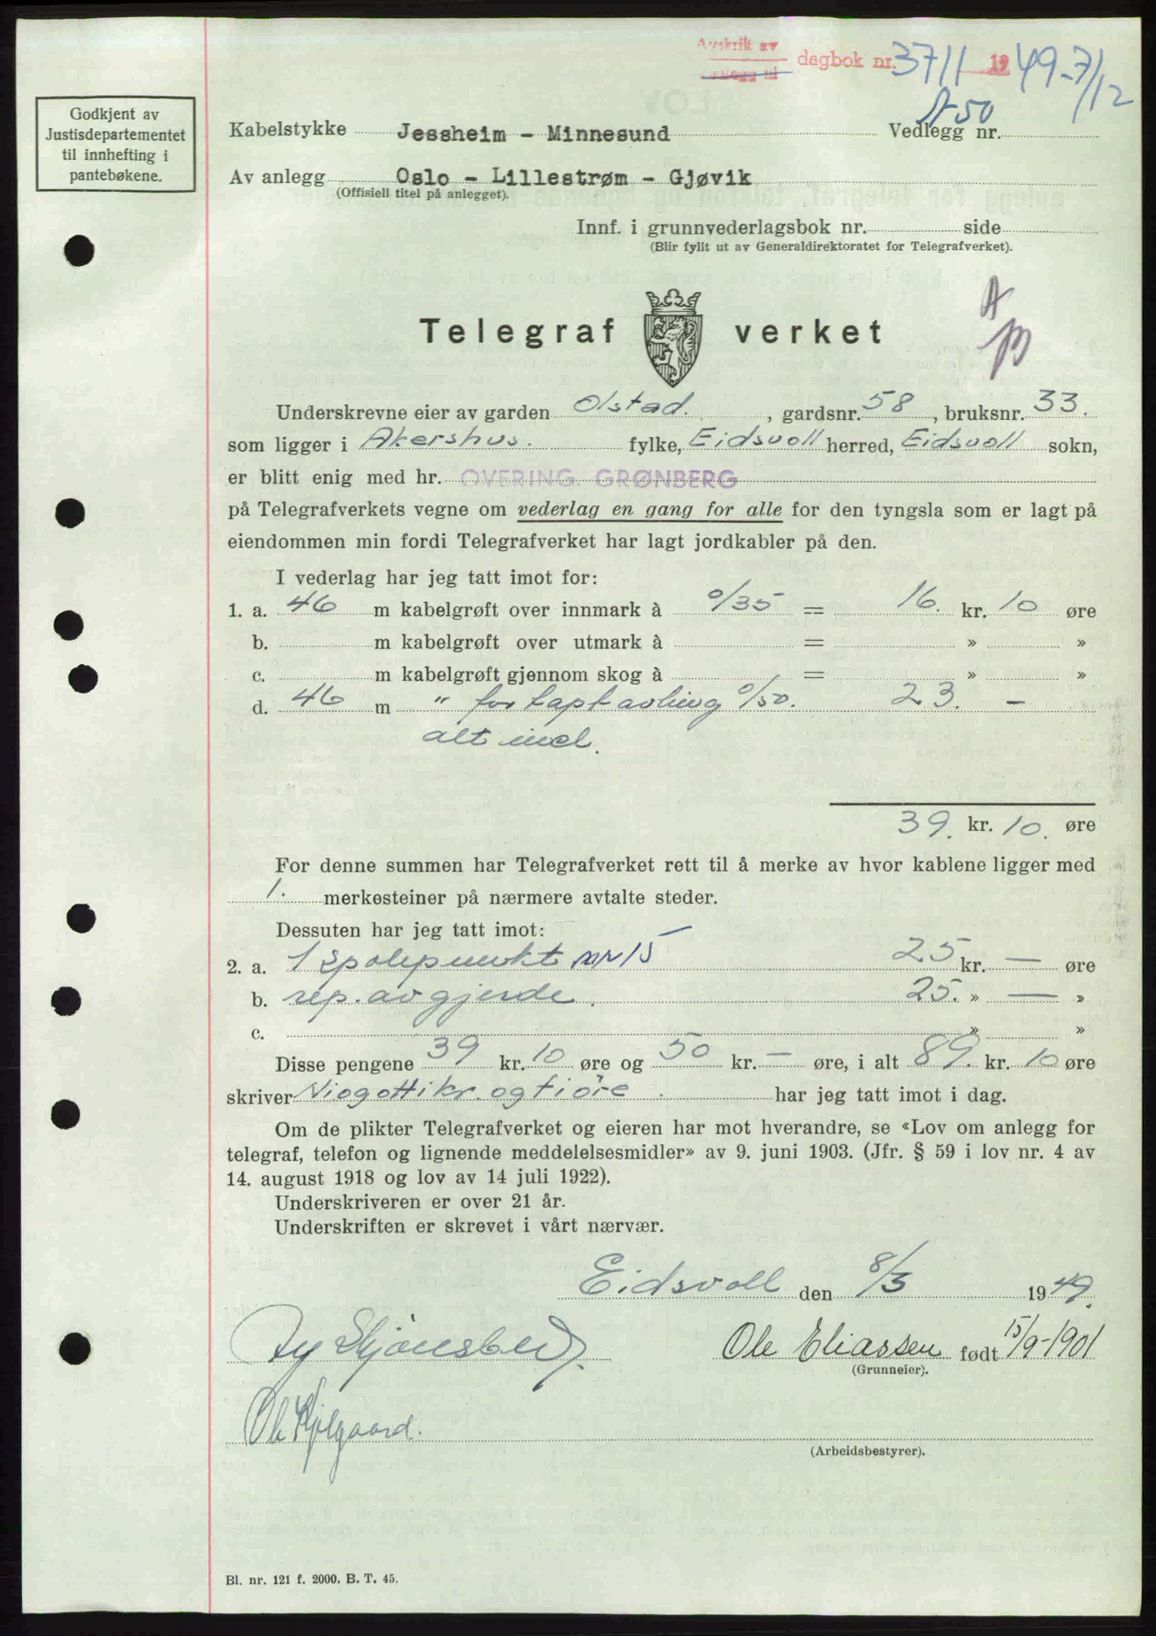 Avskrift av
dagbok nr. 3711 1949-7/12
Godkjent av
Justisdepartementet
til innhefting i
pantebøkene.
Kabelstykke Jessheim - Minnesund Vedlegg nr. A50
Av anlegg Oslo - Lillestrøm - Gjøvik
(Offisiell titel på anlegget).
Innf. i grunnvederlagsbok nr. side
(Blir fyllt ut av Generaldirektoratet for Telegrafverket).
Telegraf verket
Underskrevne eier av garden Olstad. , gardsnr. 58 , bruksnr. 33.
som ligger i Akershus. fylke, Eidsvoll herred, Eidsvoll sokn,
er blitt enig med hr. OVERING. GRØNBERG
på Telegrafverkets vegne om vederlag en gang for alle for den tyngsla som er lagt på
eiendommen min fordi Telegrafverket har lagt jordkabler på den.
I vederlag har jeg tatt imot for:
1. a. 46 m kabelgrøft over innmark à 0/35 = 16. kr. 10 øre
b. m kabelgrøft over utmark à = » »
c. m kabelgrøft gjennom skog à = » »
d. 46 m " for tapt avling 0/50. 23. —
alt incl.
39. kr. 10. øre
For denne summen har Telegrafverket rett til å merke av hvor kablene ligger med
1. merkesteiner på nærmere avtalte steder.
Dessuten har jeg tatt imot:
2. a. 1 spolepunkt nr 15 25 kr. — øre
b. rep. av gjerde. 25. » — »
c. » »
Disse pengene 39 kr. 10 øre og 50 kr. — øre, i alt 89. kr. 10 øre
skriver Niogotti kr. og ti øre. har jeg tatt imot i dag.
Om de plikter Telegrafverket og eieren har mot hverandre, se «Lov om anlegg for
telegraf, telefon og lignende meddelelsesmidler» av 9. juni 1903. (Jfr. § 59 i lov nr. 4 av
14. august 1918 og lov av 14 juli 1922).
Underskriveren er over 21 år.
Underskriften er skrevet i vårt nærvær.
Eidsvoll den 8/3 1949.
Ole Eliassen født 15/9-1901
(Grunneier).
(Arbeidsbestyrer).
Bl. nr. 121 f. 2000. B. T. 45.